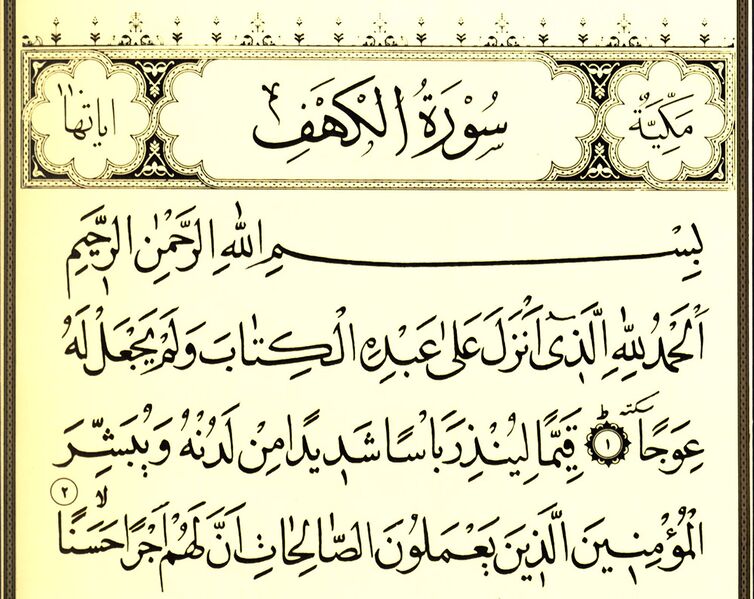 مَكِّيَّةٌ
سُورَةُ الْكَهْفِ
اٰيَاتُهَا ١١٠
بِسْمِ اللّٰهِ الرَّحْمٰنِ الرَّحٖيمِ
اَلْحَمْدُ لِلّٰهِ الَّذٖٓى اَنْزَلَ عَلٰى عَبْدِهِ الْكِتَابَ وَلَمْ يَجْعَلْ لَهُ
عِوَجًا سكته ط ١ قَيِّمًا لِيُنْذِرَ بَاْسًا شَدٖيدًا مِنْ لَدُنْهُ وَيُبَشِّرَ
الْمُؤْمِنٖينَ الَّذٖينَ يَعْمَلُونَ الصَّالِحَاتِ اَنَّ لَهُمْ اَجْرًا حَسَنًا لا ٢